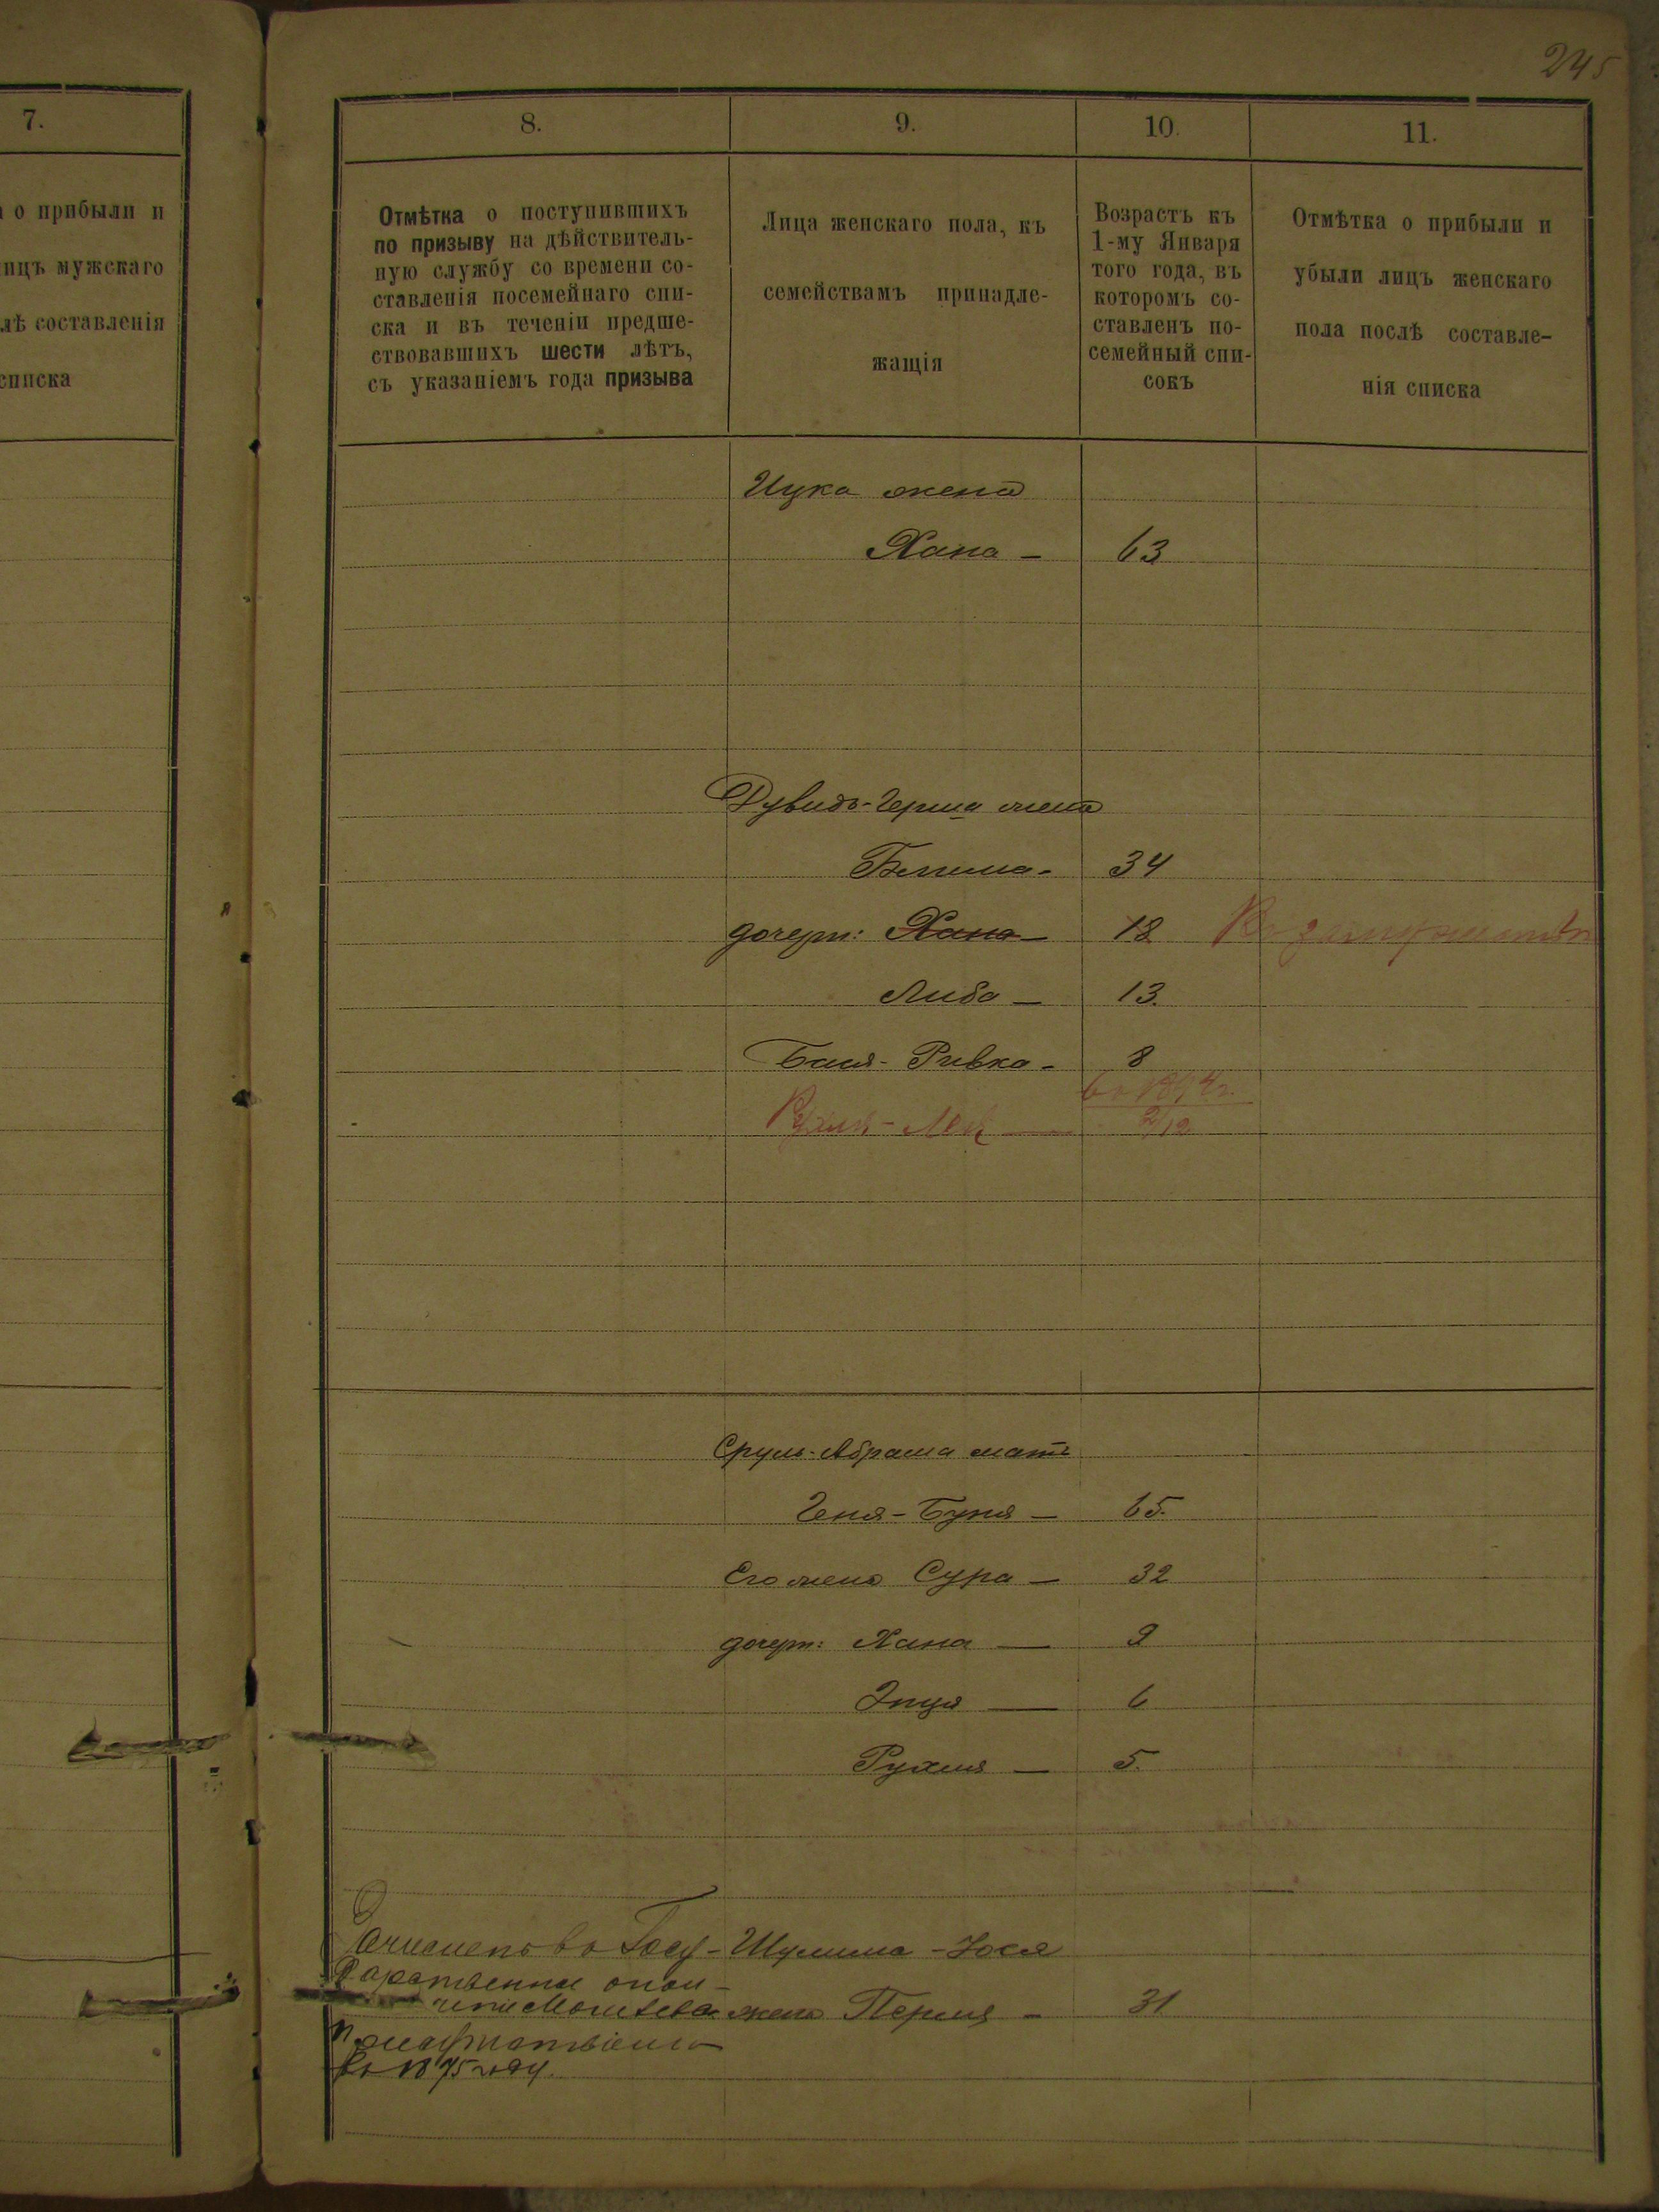 245
7.
о прибыли и
ицъ мужскаго
лѣ составленія
списка
8.
9.
10.
11.
Отмѣтка о поступившихъ
по призыву на дѣйствитель-
ную службу со времени со-
ставленія посемейнаго спи-
ска и въ теченіи предше-
ствовавшихъ шести лѣтъ,
съ указаніемъ года призыва
Лица женскаго пола, къ
семействамъ принадле-
жащія
Возрастъ къ
1-му Января
того года, въ
которомъ со-
ставленъ по-
семейный спи-
сокъ
Отмѣтка о прибыли и
убыли лицъ женскаго
пола послѣ составле-
нія списка
Ицка жена
Хана — 63
Дувидъ-Герша жена
34
дочери: Хана — 18 Въ замужествѣ
Либа — 13.
Бася-Ривка - 8
2/12
Сруль-Абрама мать
Геня-Буня — 65.
Его жена Сура — 32
дочери: Хана — 9
Энця — 6
Рухля — 5.
Шулима-Іося
жена Перля — 31
въ 1875 году.